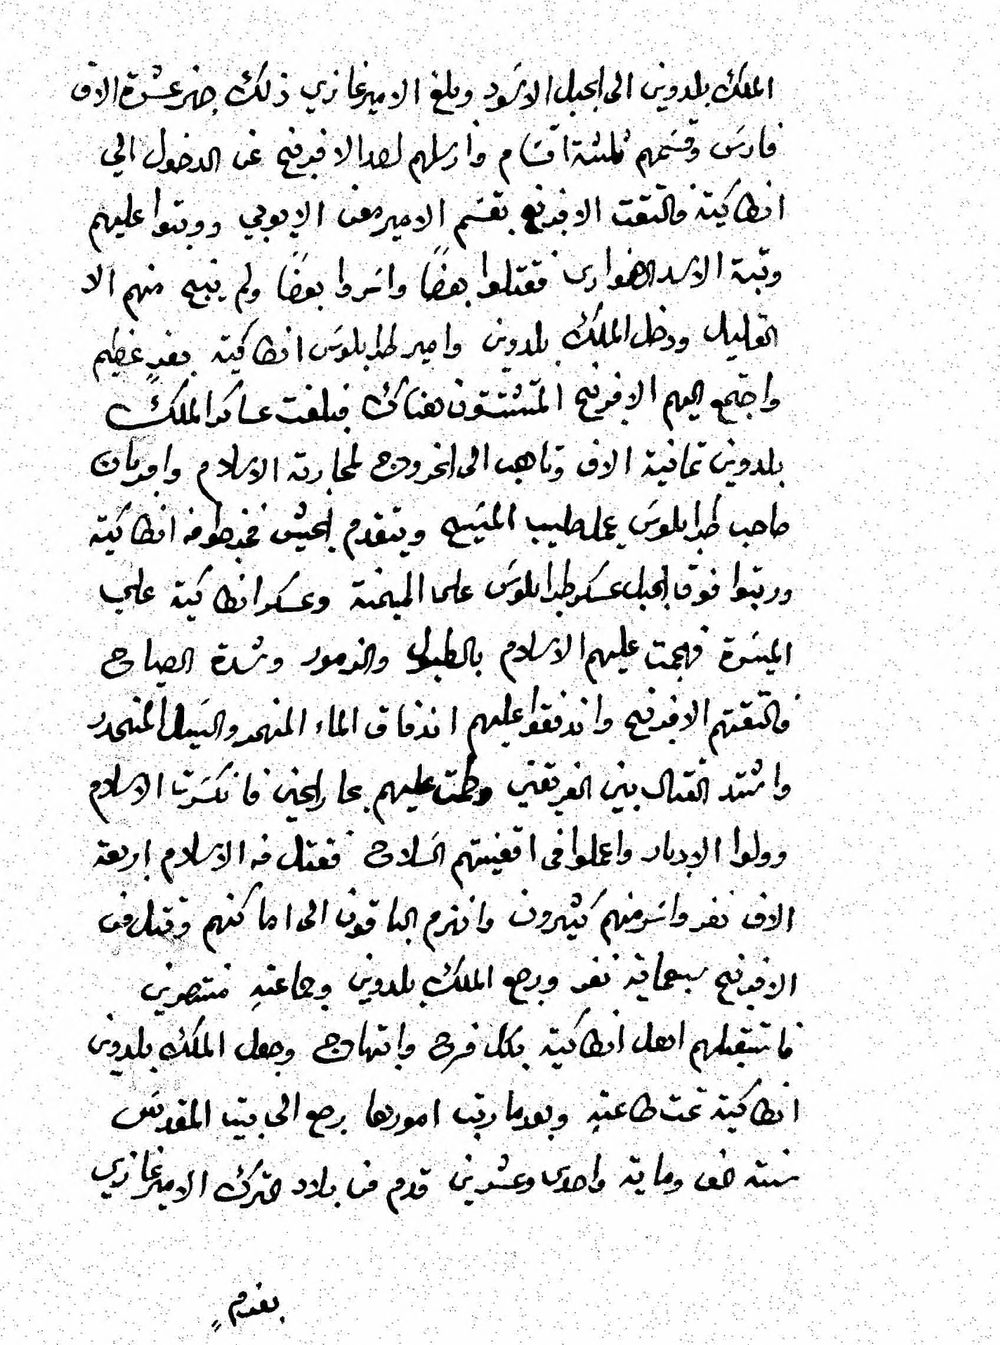 الملك بلدوين الى الجبل الاسود وبلغ الامير غازي ذلك جهز عشرة الاف
فارس وقسمهم ثلثة اقسام وارسلهم لصد الافرنج عن الدخول الي
انطاكية فالتقت الافرنج بقسم الامير معن الايوبي ووثبوا عليهم
وثبة الاسد الضواري فقتلوا بعضًا واسروا بعضًا ولم ينج منهم الا
القليل ودخل الملك بلدوين وامير طرابلوس انطاكية بعزٍ عظيم
واجتمع اليهم الافرنج المتشتتون هناك فبلغت عساكر الملك
بلدوين ثمانية الاف وتاهب الى الخروج لمحاربة الاسلام وامر بان
صاحب طرابلوس يحمل صليب المسيح ويتقدم الجيش فخرجوا من انطاكية
ورتبوا فوق الجبل عسكر طرابلوس على الميمنة وعسكر انطاكية علي
الميسرة فهجمت عليهم الاسلام بالطبول والزمور وشدة الصياح
فالتقتهم الافرنج واندفقوا عليهم اندفاق الماء المنهمر والسيل المنحدر
واشتد القتال بين الفريقين وطمت عليهم بحار الحين فانكسرت الاسلام
وولوا الادبار واعملوا في اقفيتهم السلاح فقتل من الاسلام اربعة
الاف نفر واسر منهم كثيرون وانهزم الباقون الى اماكنهم وقتل من
الافرنج سبعماية نفر ورجع الملك بلدوين وجماعته منتصرين
فاستقبلهم اهل انطاكية بكل فرح وابتهاج وجعل الملك بلدوين
انطاكية تحت طاعته وبعد ما رتب امورها رجع الى بيت المقدس
سنة الف وماية واحدى وعشرين قدم من بلاد الترك الامير غازي